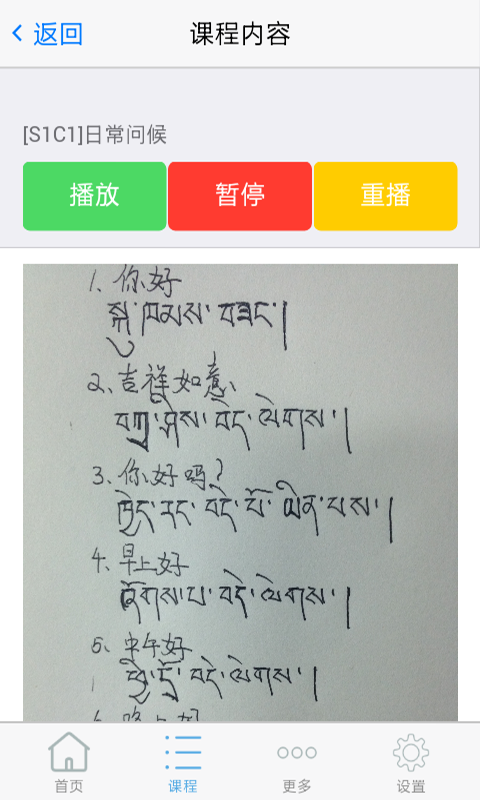 返回
课程内容
[S1C1]日常问候
播放
暂停
重播
1. 你好
སྐུ་ཁམས་བཟང་།
2、吉祥如意、
བཀྲ་ཤིས་བདེ་ལེགས་།
3、你好吗?
ཁྱེད་རང་བདེ་པོ་ཡིན་པས་།
4、早上好
སྔོགས་པ་བདེ་ལེགས་།
5、中午好
ཕྱི་དྲོ་བདེ་ལེགས་།
首页
课程
更多
设置